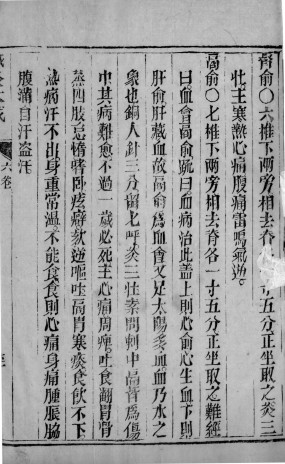 督俞○六椎下兩旁相去脊 寸五分正坐取之灸三
壯主寒熱心痛腹痛雷鳴氣逆
膈俞○七椎下兩旁相去脊各一寸五分正坐取之難經
曰血會膈俞疏曰血病治此蓋上則心俞心生血下則
肝俞肝藏血故膈俞為血會又足太陽多血血乃水之
象也銅人針三分留七呼灸三壯素問刺中膈皆為傷
中其病難愈不過一歲必死主心痛周痺吐食翻胃骨
蒸四肢怠惰嗜臥痃癖欬逆嘔吐膈胃寒痰食飲不下
熱病汗不出身重常溫不能食食則心痛身痛腫脹脇
腹滿自汗盜汗
六卷